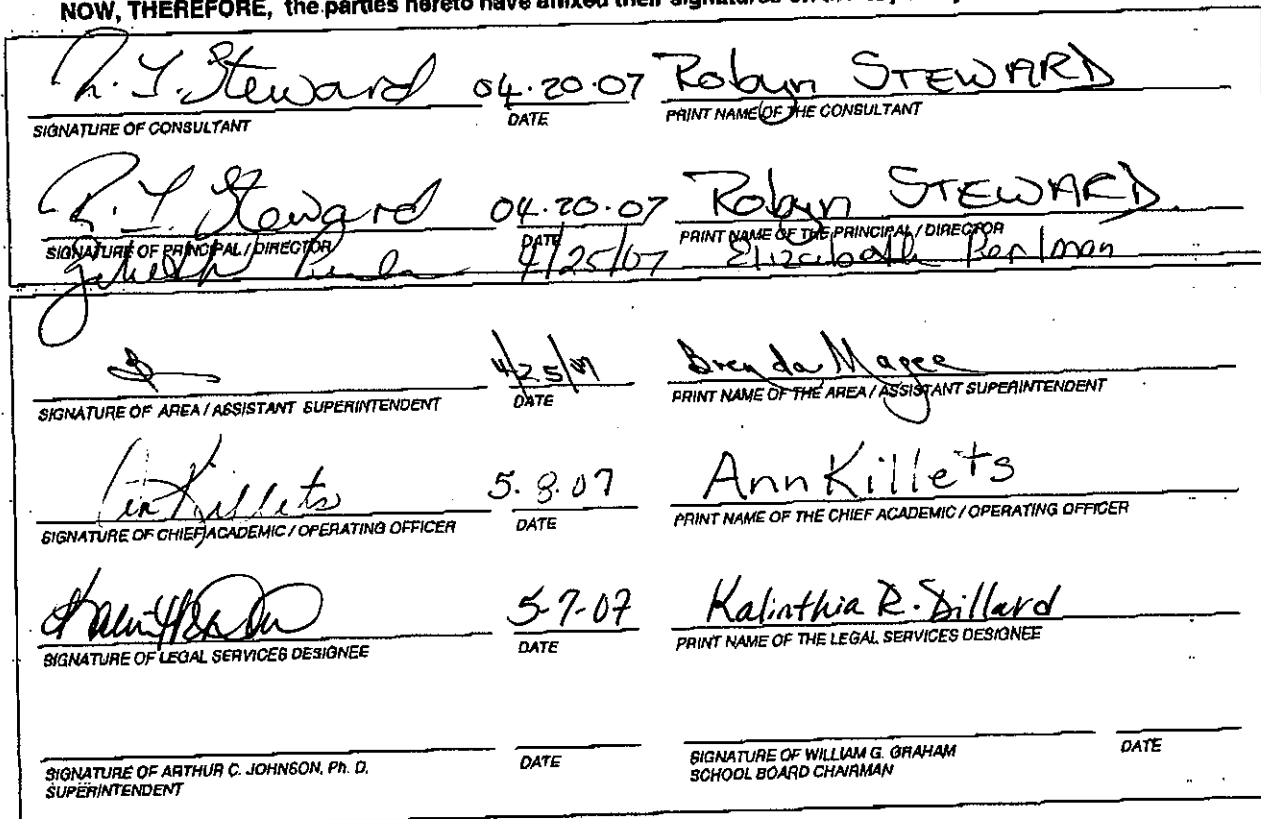 NOW, THEREFORE, the parties hereto have affixed their signatures on the
R. Y. Steward 04.20.07 Robyn STEWARD
SIGNATURE OF CONSULTANT DATE PRINT NAME OF THE CONSULTANT
R. Y. Steward 04.20.07 Robyn STEWARD
SIGNATURE OF PRINCIPAL / DIRECTOR DATE PRINT NAME OF THE PRINCIPAL / DIRECTOR
4/25/07 Elizabeth Perlman
4/25/07 Brenda Magee
SIGNATURE OF AREA / ASSISTANT SUPERINTENDENT DATE PRINT NAME OF THE AREA / ASSISTANT SUPERINTENDENT
Ann Killets 5.8.07 Ann Killets
SIGNATURE OF CHIEF ACADEMIC / OPERATING OFFICER DATE PRINT NAME OF THE CHIEF ACADEMIC / OPERATING OFFICER
5-7-07 Kalinthia R. Dillard
SIGNATURE OF LEGAL SERVICES DESIGNEE DATE PRINT NAME OF THE LEGAL SERVICES DESIGNEE
SIGNATURE OF ARTHUR C. JOHNSON, Ph. D. DATE SIGNATURE OF WILLIAM G. GRAHAM DATE
SUPERINTENDENT SCHOOL BOARD CHAIRMAN